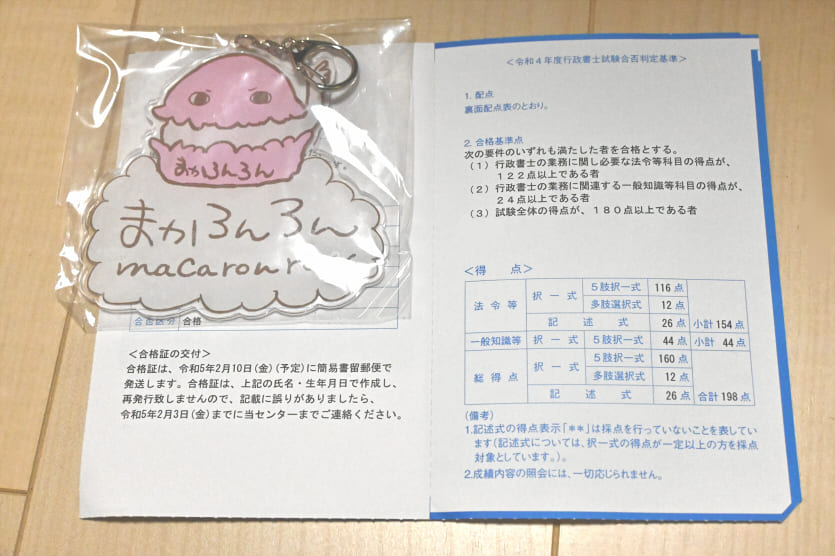 まかろんろん
まかろんろん
合否区分 合格
<合格証の交付>
合格証は、令和5年2月10日(金)(予定)に簡易書留郵便で
発送します。合格証は、上記の氏名・生年月日で作成し、
再発行致しませんので、記載に誤りがありましたら、
令和5年2月3日(金)までに当センターまでご連絡ください。
<令和4年度行政書士試験合否判定基準>
1. 配点
裏面配点表のとおり。
2. 合格基準点
次の要件のいずれも満たした者を合格とする。
(1) 行政書士の業務に関し必要な法令等科目の得点が、
122点以上である者
(2) 行政書士の業務に関連する一般知識等科目の得点が、
24点以上である者
(3) 試験全体の得点が、180点以上である者
<得 点>
法令等 択一式 5肢択一式 116 点
多肢選択式 12 点
記述式 26 点 小計 154 点
一般知識等 択一式 5肢択一式 44 点 小計 44 点
総得点 択一式 5肢択一式 160 点
多肢選択式 12 点
記述式 26 点 合計 198 点
(備考)
1.記述式の得点表示「**」は採点を行っていないことを表してい
ます(記述式については、択一式の得点が一定以上の方を採点
対象としています。)。
2.成績内容の照会には、一切応じられません。